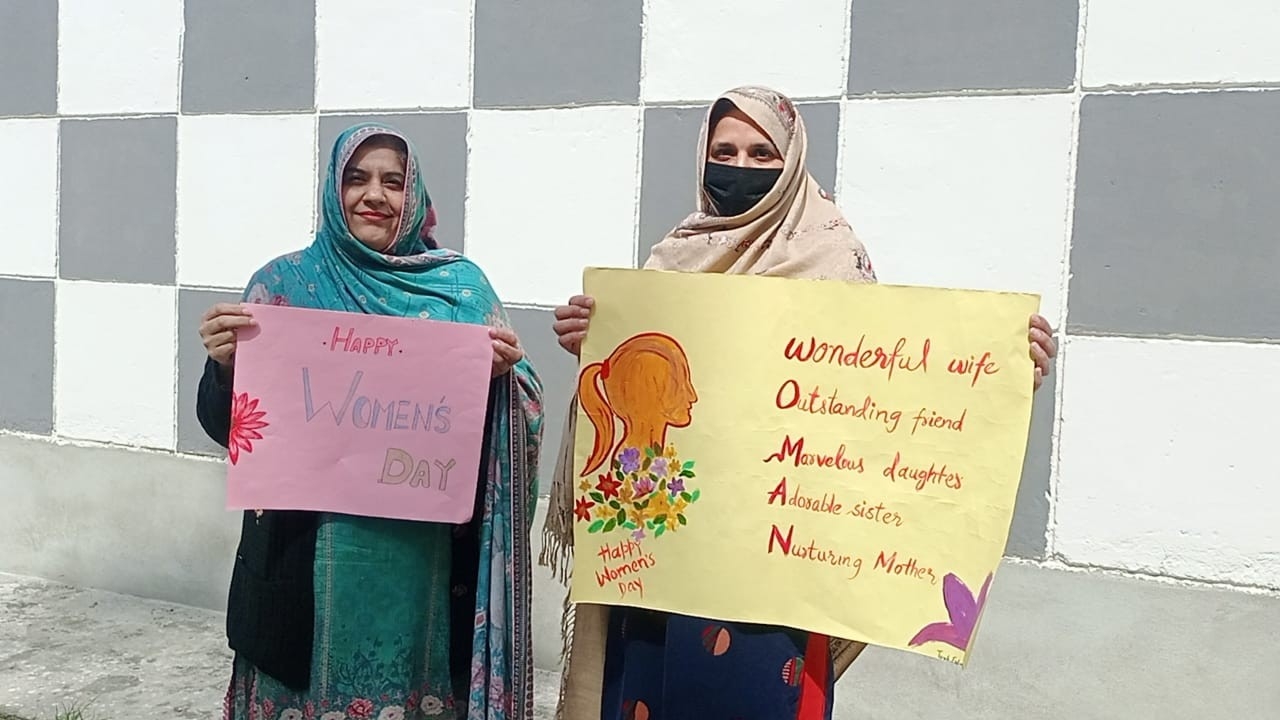 HAPPY
WOMEN'S
DAY
Wonderful wife
Outstanding friend
Marvelous daughter
Adorable sister
Nurturing Mother
Happy
Women's
Day